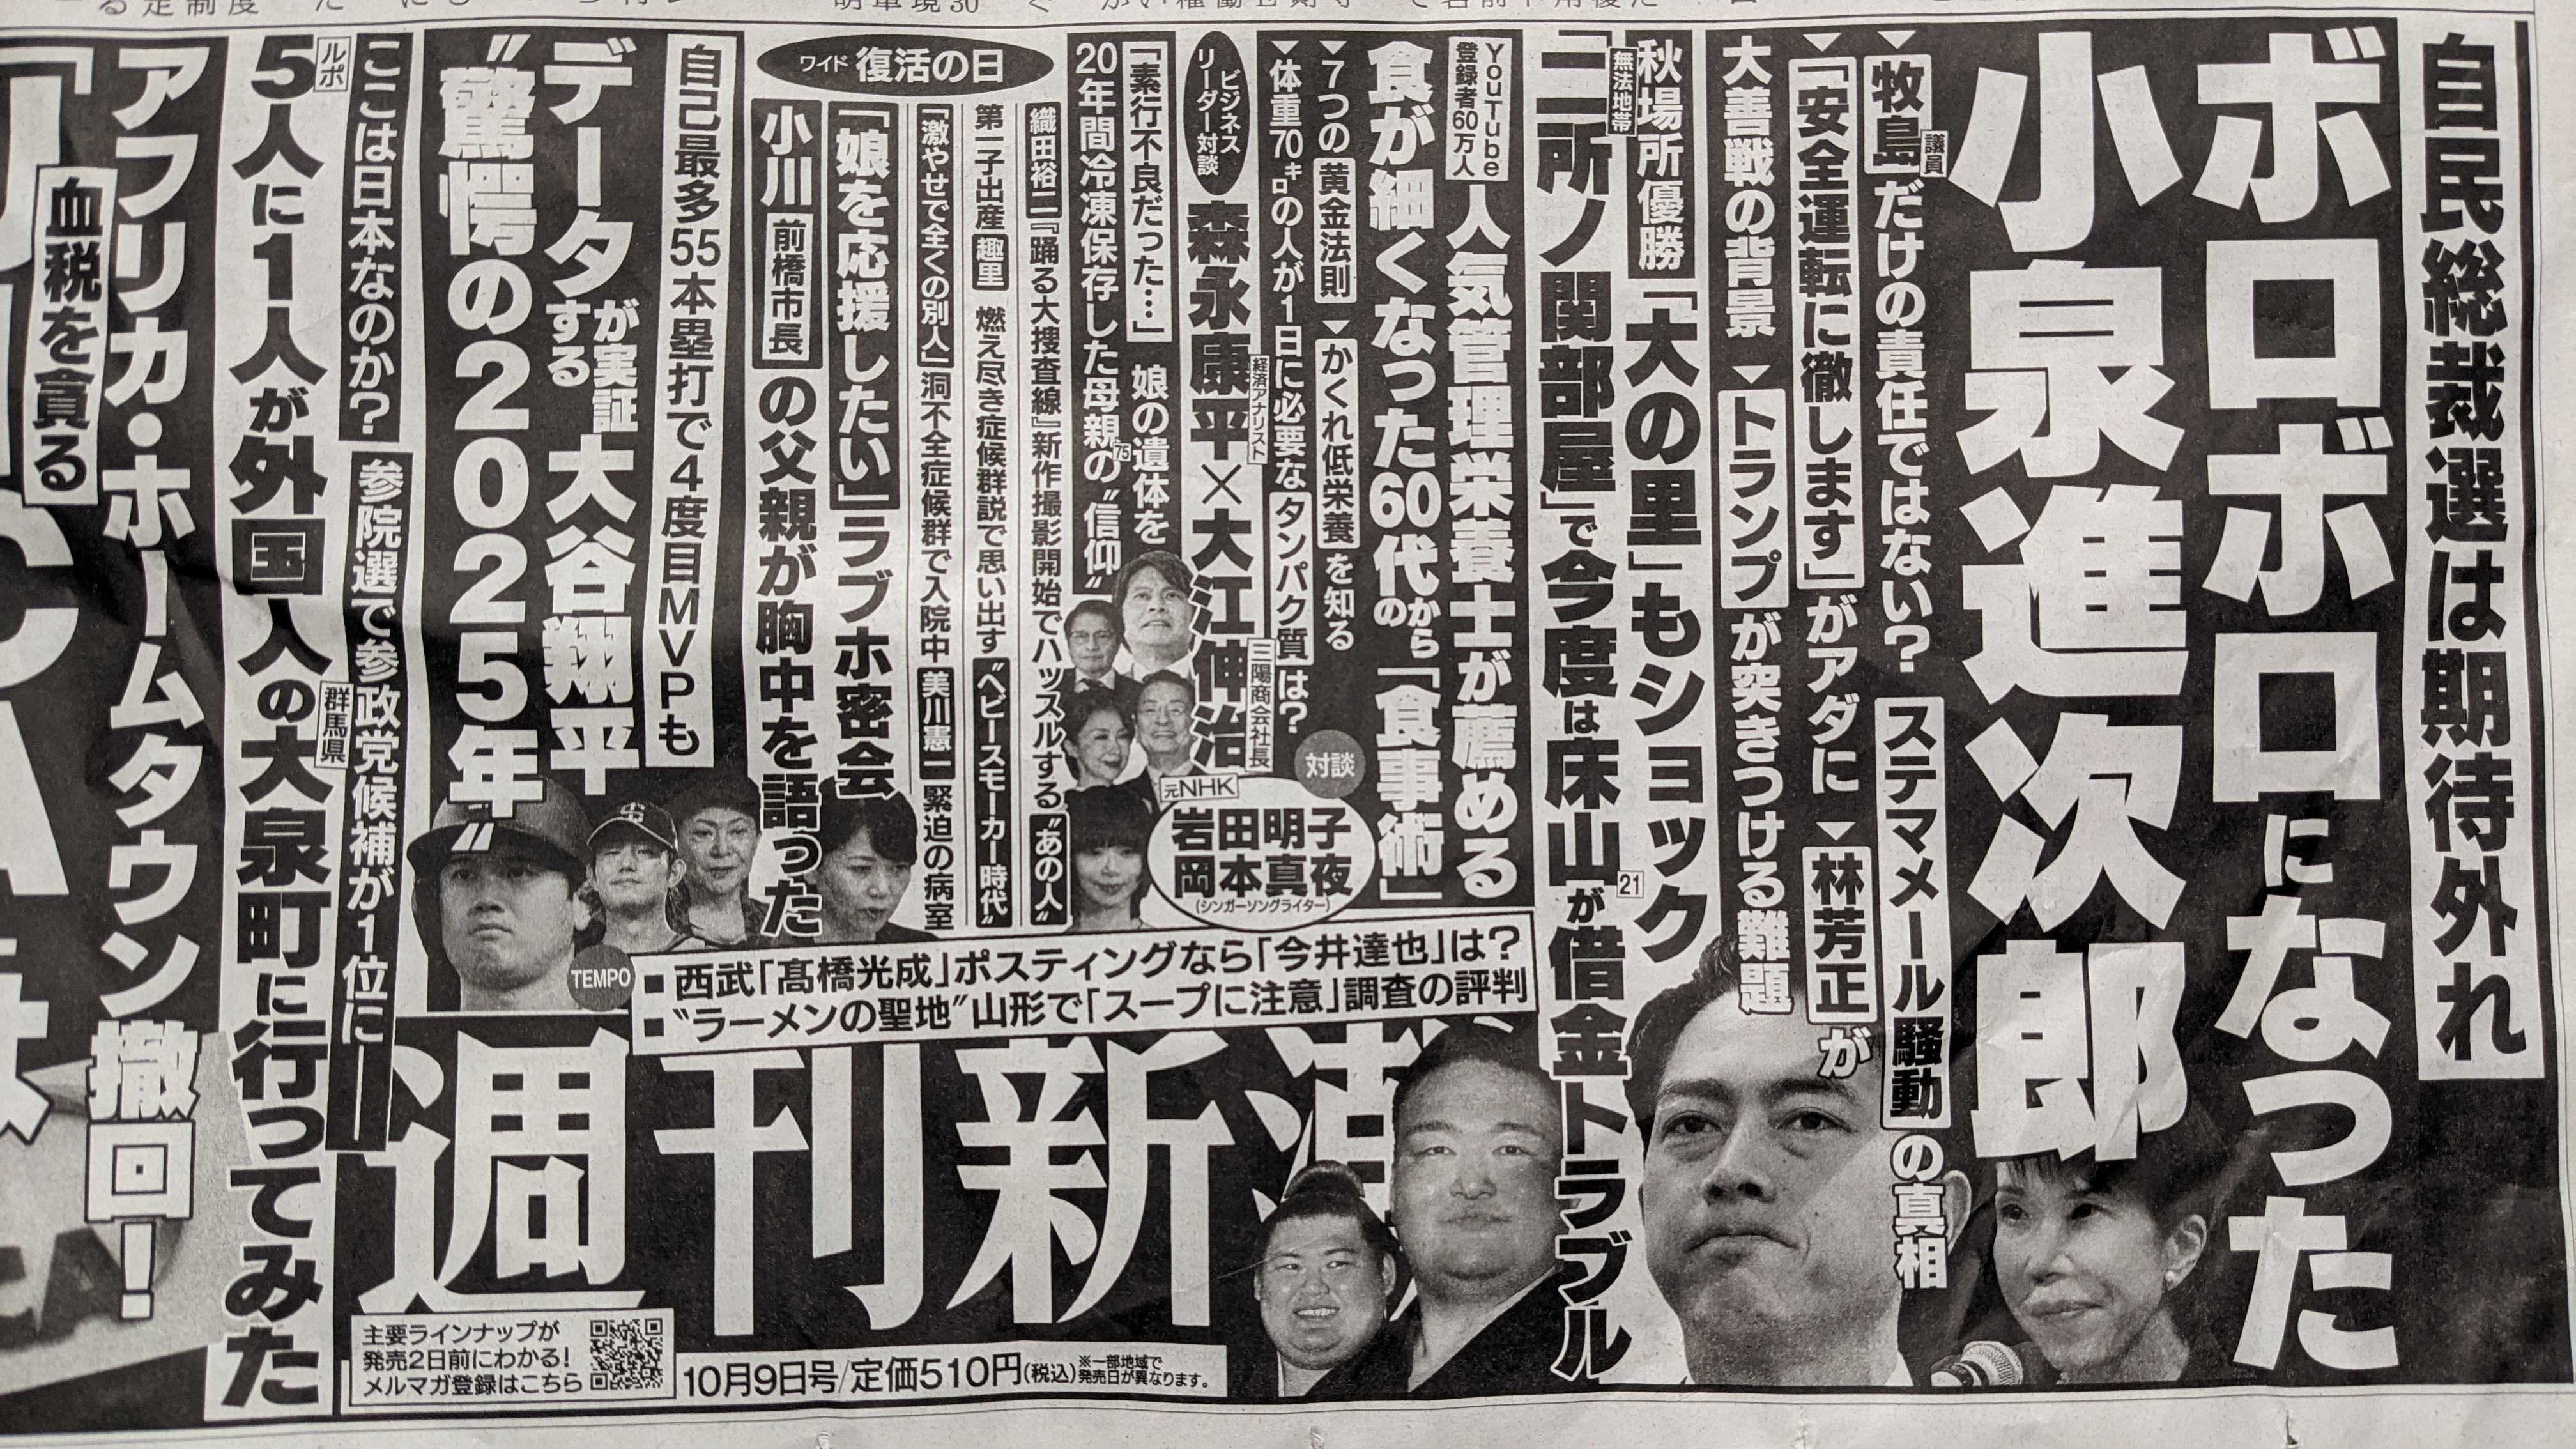 自民総裁選は期待外れ
ボロボロになった
小泉進次郎
▼牧島議員だけの責任ではない?ステマメール騒動の真相
▼「安全運転に徹します」がアダに▼林芳正が
大善戦の背景▼トランプが突きつける難題
秋場所優勝「大の里」もショック
無法地帯
「二所ノ関部屋」で今度は床山21が借金トラブル
YouTube登録者60万人
人気管理栄養士が薦める
食が細くなった60代からの「食事術」
▼7つの黄金法則▼かくれ低栄養を知る
▼体重70㌔の人が1日に必要なタンパク質は?
対談
元NHK
岩田明子
岡本真夜
(シンガーソングライター)
ビジネスリーダー対談
森永康平経済アナリスト×大江伸治三陽商会社長
「素行不良だった…」娘の遺体を
20年間冷凍保存した母親75の〝信仰〟
ワイド 復活の日
織田裕二『踊る大捜査線』新作撮影開始でハッスルする〝あの人〟
第一子出産 趣里 燃え尽き症候群説で思い出す〝ベビースモーカー時代〟
「激やせで全くの別人」洞不全症候群で入院中 美川憲一 緊迫の病室
「娘を応援したい」ラブホ密会
小川前橋市長の父親が胸中を語った
自己最多55本塁打で4度目MVPも
データが実証する大谷翔平
〝驚愕の2025年〟
TEMPO
■西武「髙橋光成」ポスティングなら「今井達也」は?
■〝ラーメンの聖地〟山形で「スープに注意」調査の評判
ここは日本なのか?参院選で参政党候補が1位に――
ルポ
5人に1人が外国人の群馬県大泉町に行ってみた
アフリカ・ホームタウン撤回!
血税を貪る
週刊新潮
10月9日号/定価510円(税込)※一部地域で発売日が異なります。
主要ラインナップが
発売2日前にわかる!
メルマガ登録はこちら